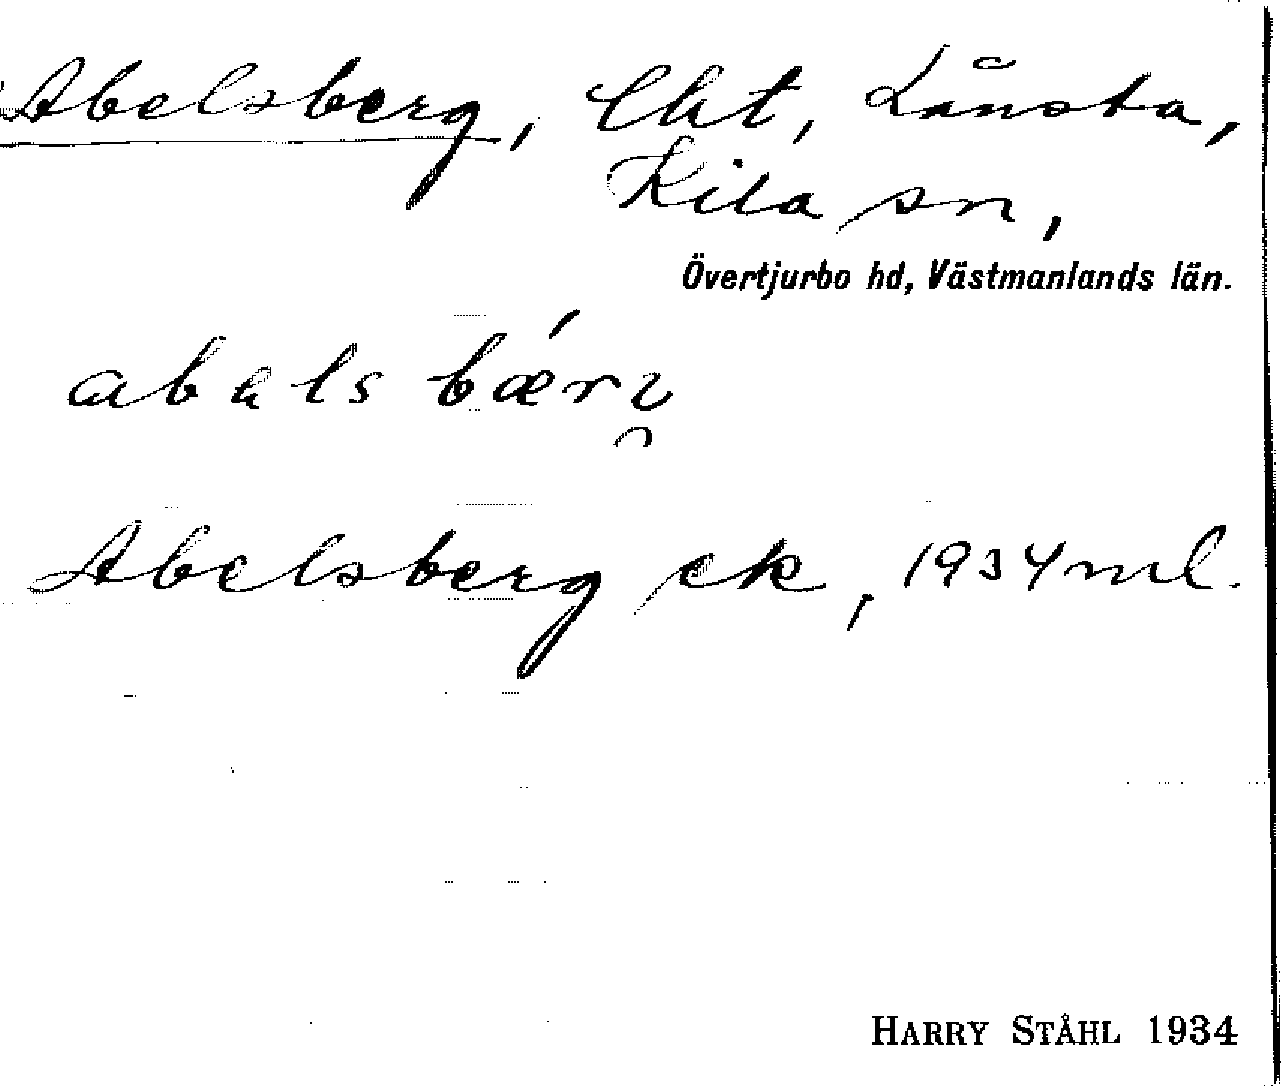 Abelsberg, lht, Lånsta,
Kila sn,
Övertjurbo hd, Västmanlands län.
Abelsberg ek, 1934 ml.
HARRY STÅHL 1934